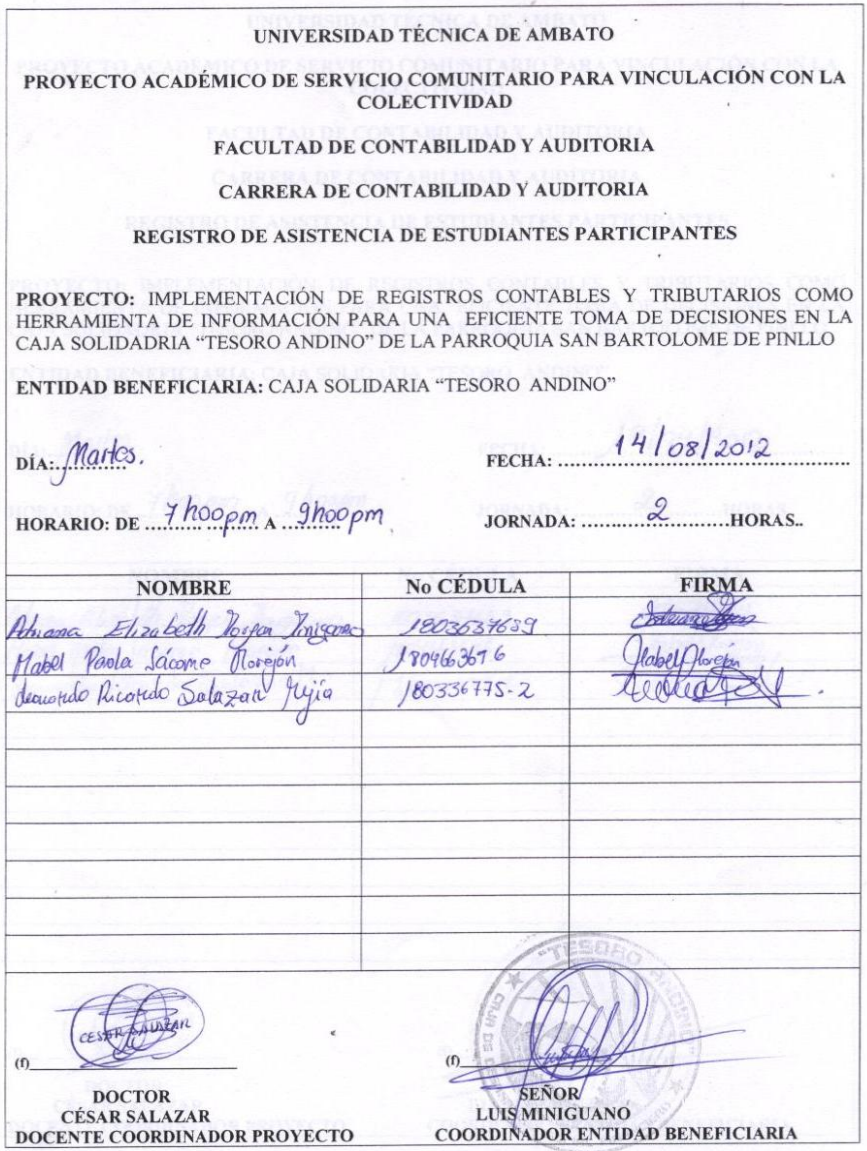 UNIVERSIDAD TÉCNICA DE AMBATO
PROYECTO ACADÉMICO DE SERVICIO COMUNITARIO PARA VINCULACIÓN CON LA
COLECTIVIDAD
FACULTAD DE CONTABILIDAD Y AUDITORIA
CARRERA DE CONTABILIDAD Y AUDITORIA
REGISTRO DE ASISTENCIA DE ESTUDIANTES PARTICIPANTES
PROYECTO: IMPLEMENTACIÓN DE REGISTROS CONTABLES Y TRIBUTARIOS COMO
HERRAMIENTA DE INFORMACIÓN PARA UNA EFICIENTE TOMA DE DECISIONES EN LA
CAJA SOLIDADRIA “TESORO ANDINO” DE LA PARROQUIA SAN BARTOLOME DE PINLLO
ENTIDAD BENEFICIARIA: CAJA SOLIDARIA “TESORO ANDINO”
DÍA: Martes. FECHA: 14/08/2012
HORARIO: DE 7h00pm A 9h00pm JORNADA: 2 HORAS..
NOMBRE No CÉDULA FIRMA
Adriana Elizabeth 1803637689
Mabel Paola Jácome Morejón 1804663676 Mabel Morejón
Leonardo Ricardo Salazar Mejía 180336775-2
"TESORO ANDINO"
CESAR SALAZAR
(f) (f)
DOCTOR SEÑOR
CÉSAR SALAZAR LUIS MINIGUANO
DOCENTE COORDINADOR PROYECTO COORDINADOR ENTIDAD BENEFICIARIA